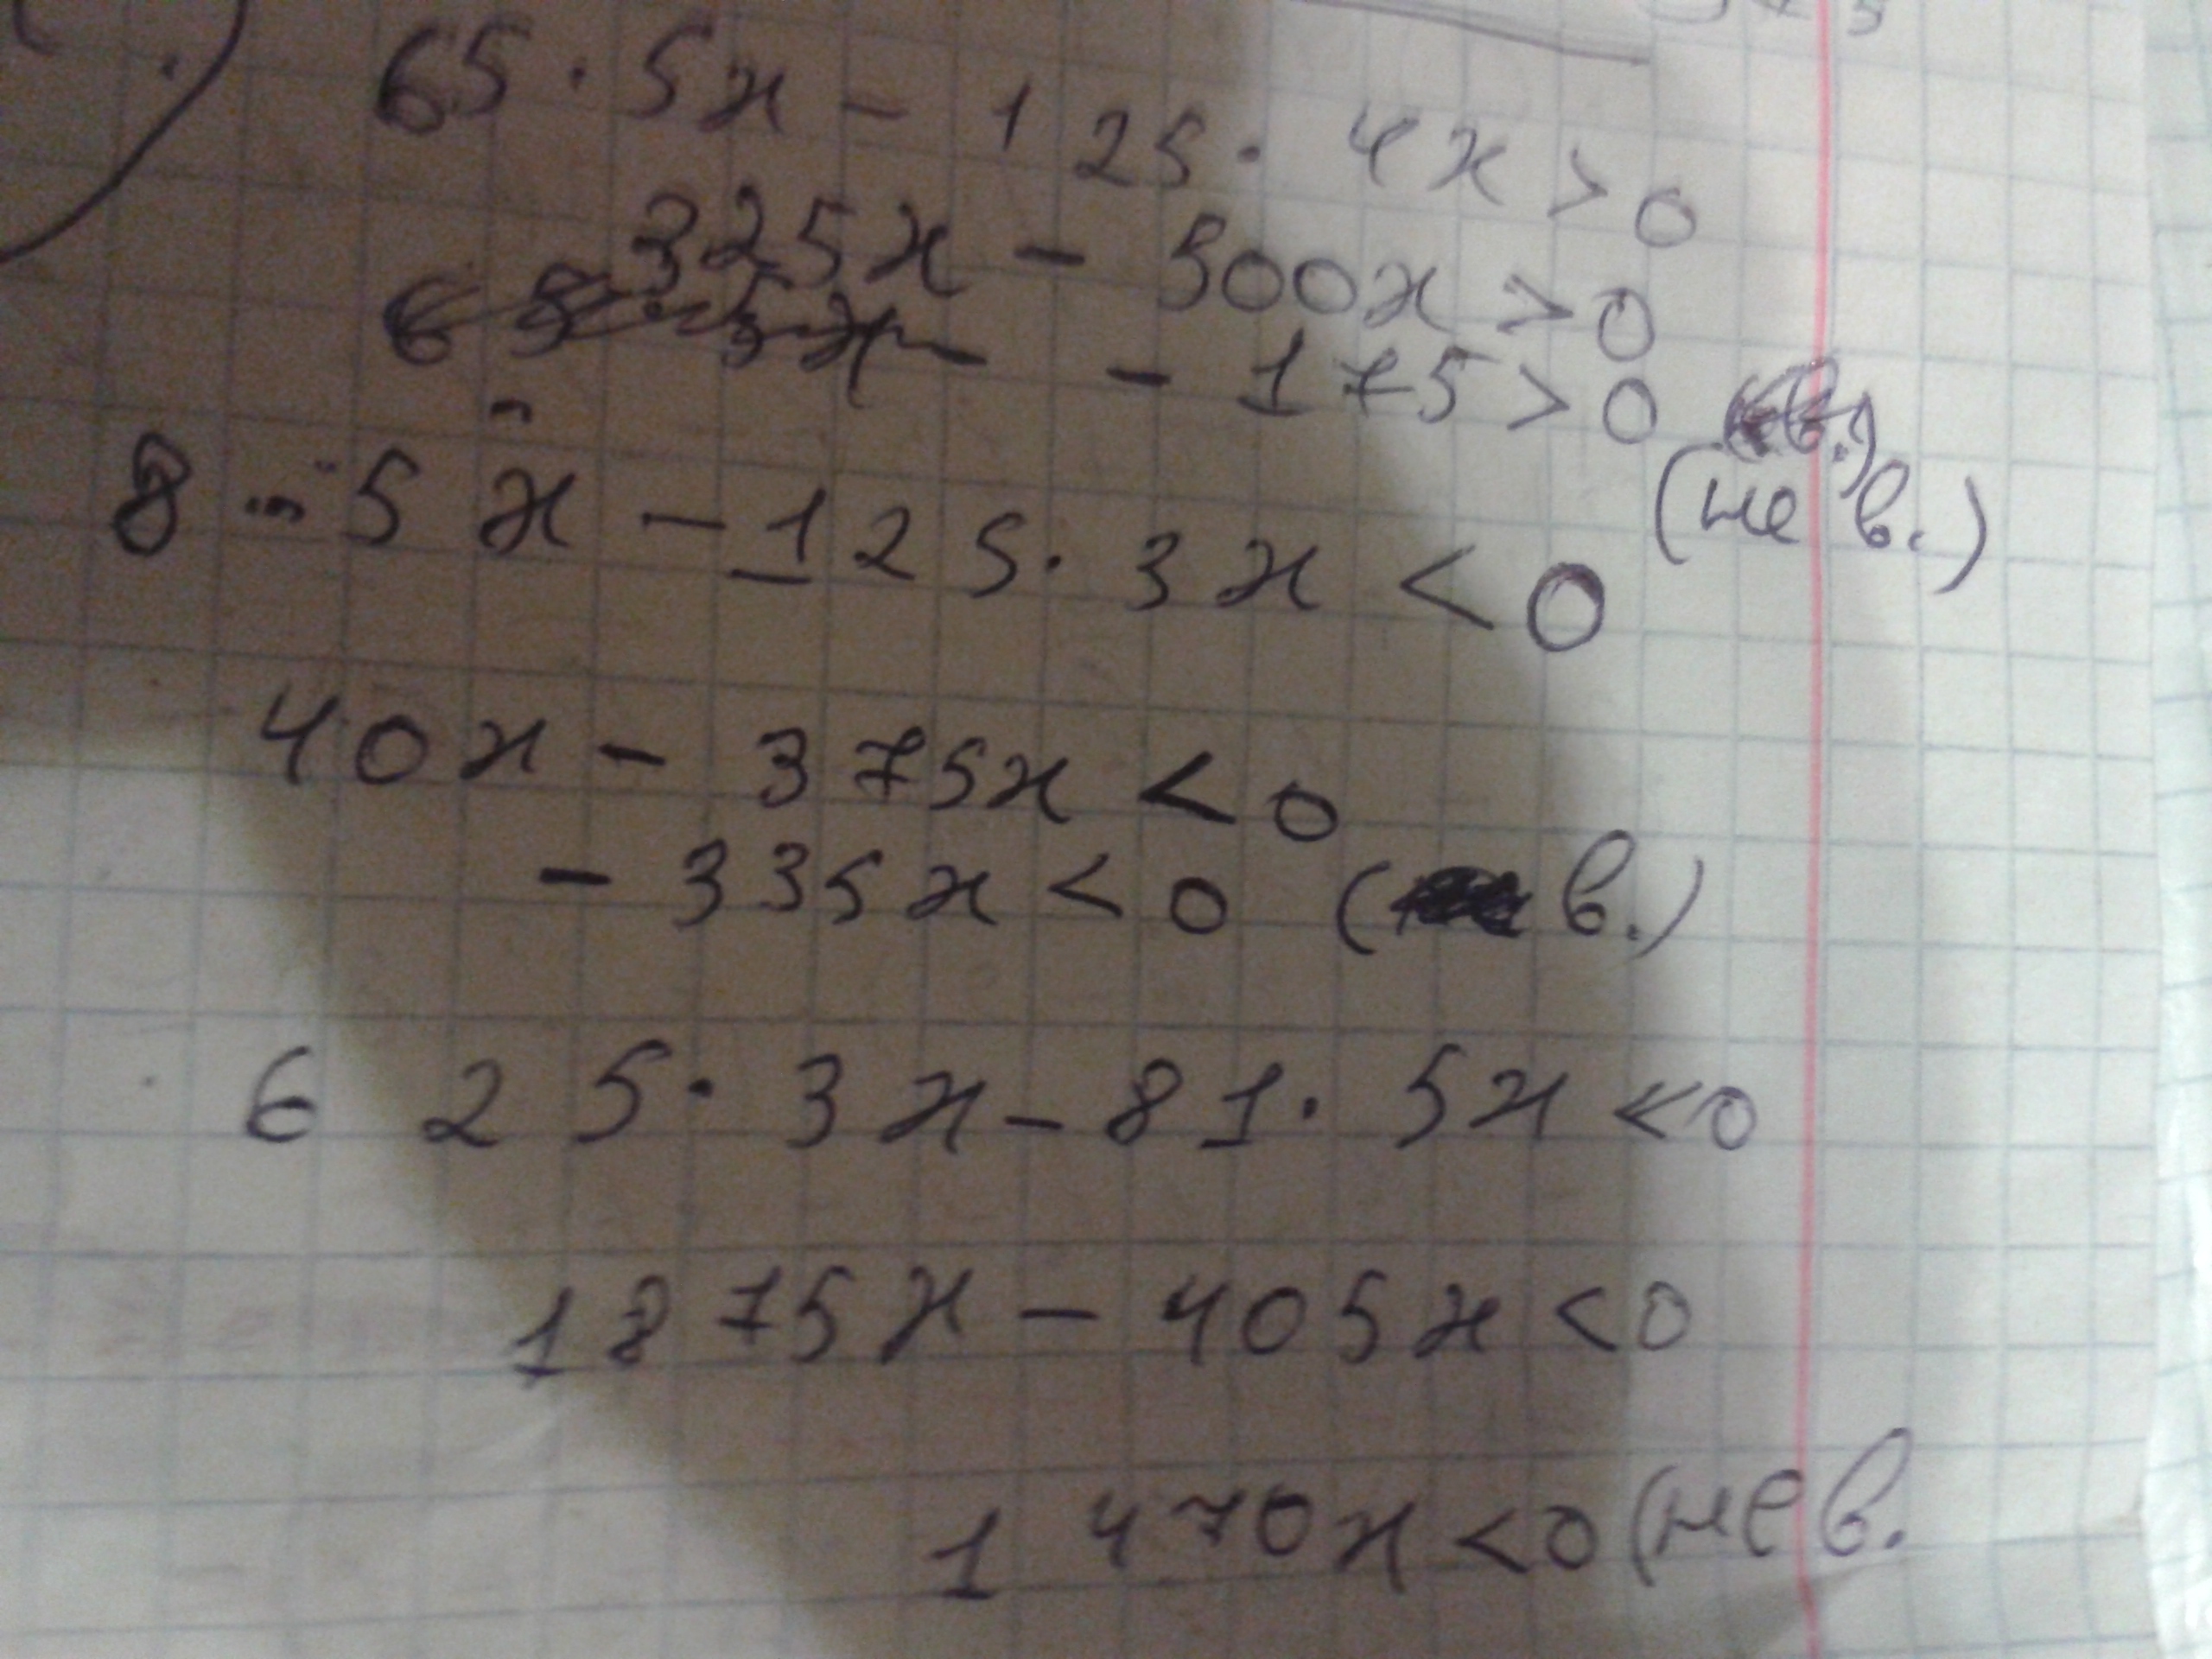 65 · 5x - 125 · 4x > 0
325x - 500x > 0
- 175 > 0
(не в.)
8 · 5x - 125 · 3x < 0
40x - 375x < 0
- 335x < 0 (в.)
625 · 3x - 81 · 5x < 0
1875x - 405x < 0
1470x < 0 (не в.